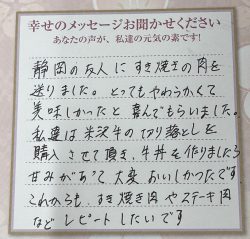 幸せのメッセージお聞かせください
あなたの声が、私達の元気の素です!
静岡の友人にすき焼きの肉を
送りました。とってもやわらかくて
美味しかったと喜んでもらいました。
私達は米沢牛の切り落としを
購入させて頂き、牛丼を作りました。
甘みがあって大変おいしかったです
これからも、すき焼き肉やステーキ肉
などレピートしたいです